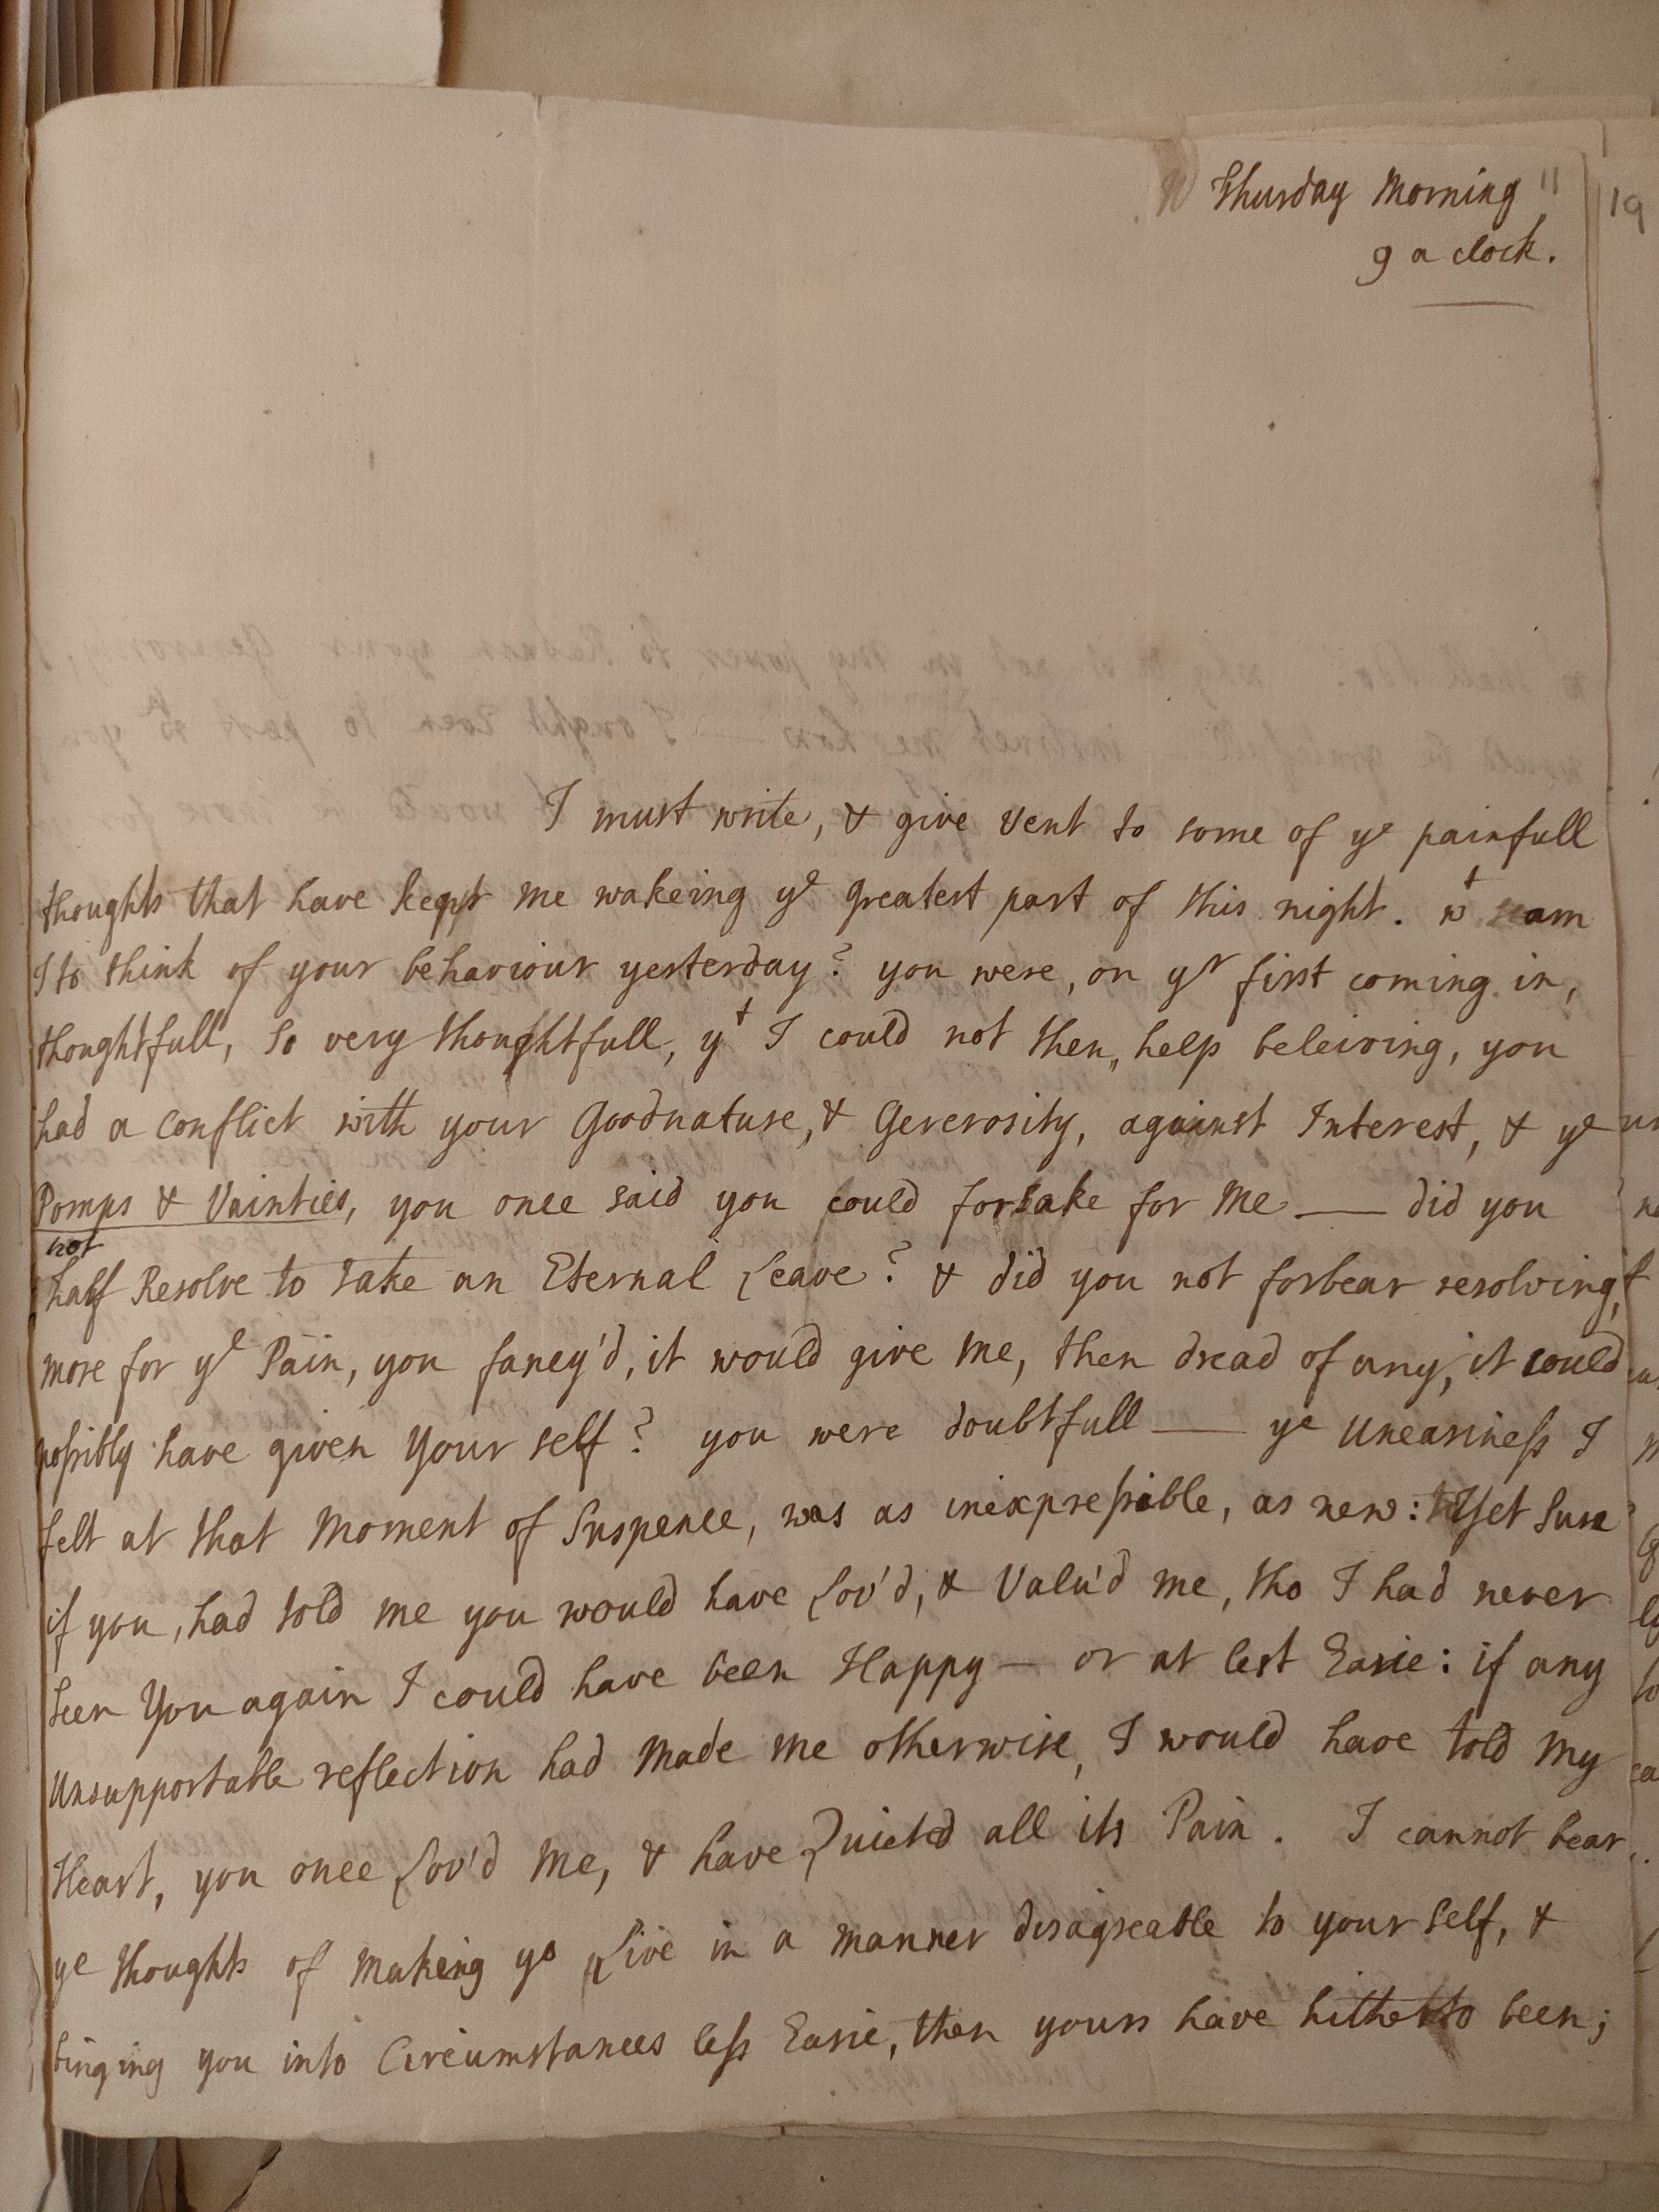 Thursday Morning 11
9 a clock.
19
I must write, & give vent to some of ye painfull
thoughts that have kept me wakeing ye greatest part of this night. wt am
I to think of your behaviour yesterday? you were, on yr first coming in,
thoughtfull, so very thoughtfull, yt I could not then, help beleiving, you
had a conflict with your Goodnature, & Generosity, against Interest, & ye
Pomps & Vainties, you once said you could forsake for me — did you
not
half Resolve to take an Eternal Leave? & did you not forbear resolving it
more for ye Pain, you fancy'd, it would give me, then dread of any, it could
possibly have given your self? you were doubtfull — ye Uneasiness I
felt at that Moment of Suspence, was as inexpressible, as new: Yet sure
if you, had told me you would have Lov'd, & Valu'd me, tho I had never
seen You again I could have been Happy — or at lest Easie: if any
Unsupportable reflection had made me otherwise, I would have told my
Heart, you once Lov'd me, & have Quieted all its Pain. I cannot bear
ye thoughts of making yo Live in a manner disagreable to your self, &
bringing you into Circumstances less Easie, then yours have hitherto been;